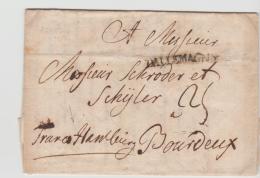 A Messieur
D'ALLEMAGNE
Messieur Schroder et
Schÿler
25
Franco Hamburg Bourdeux